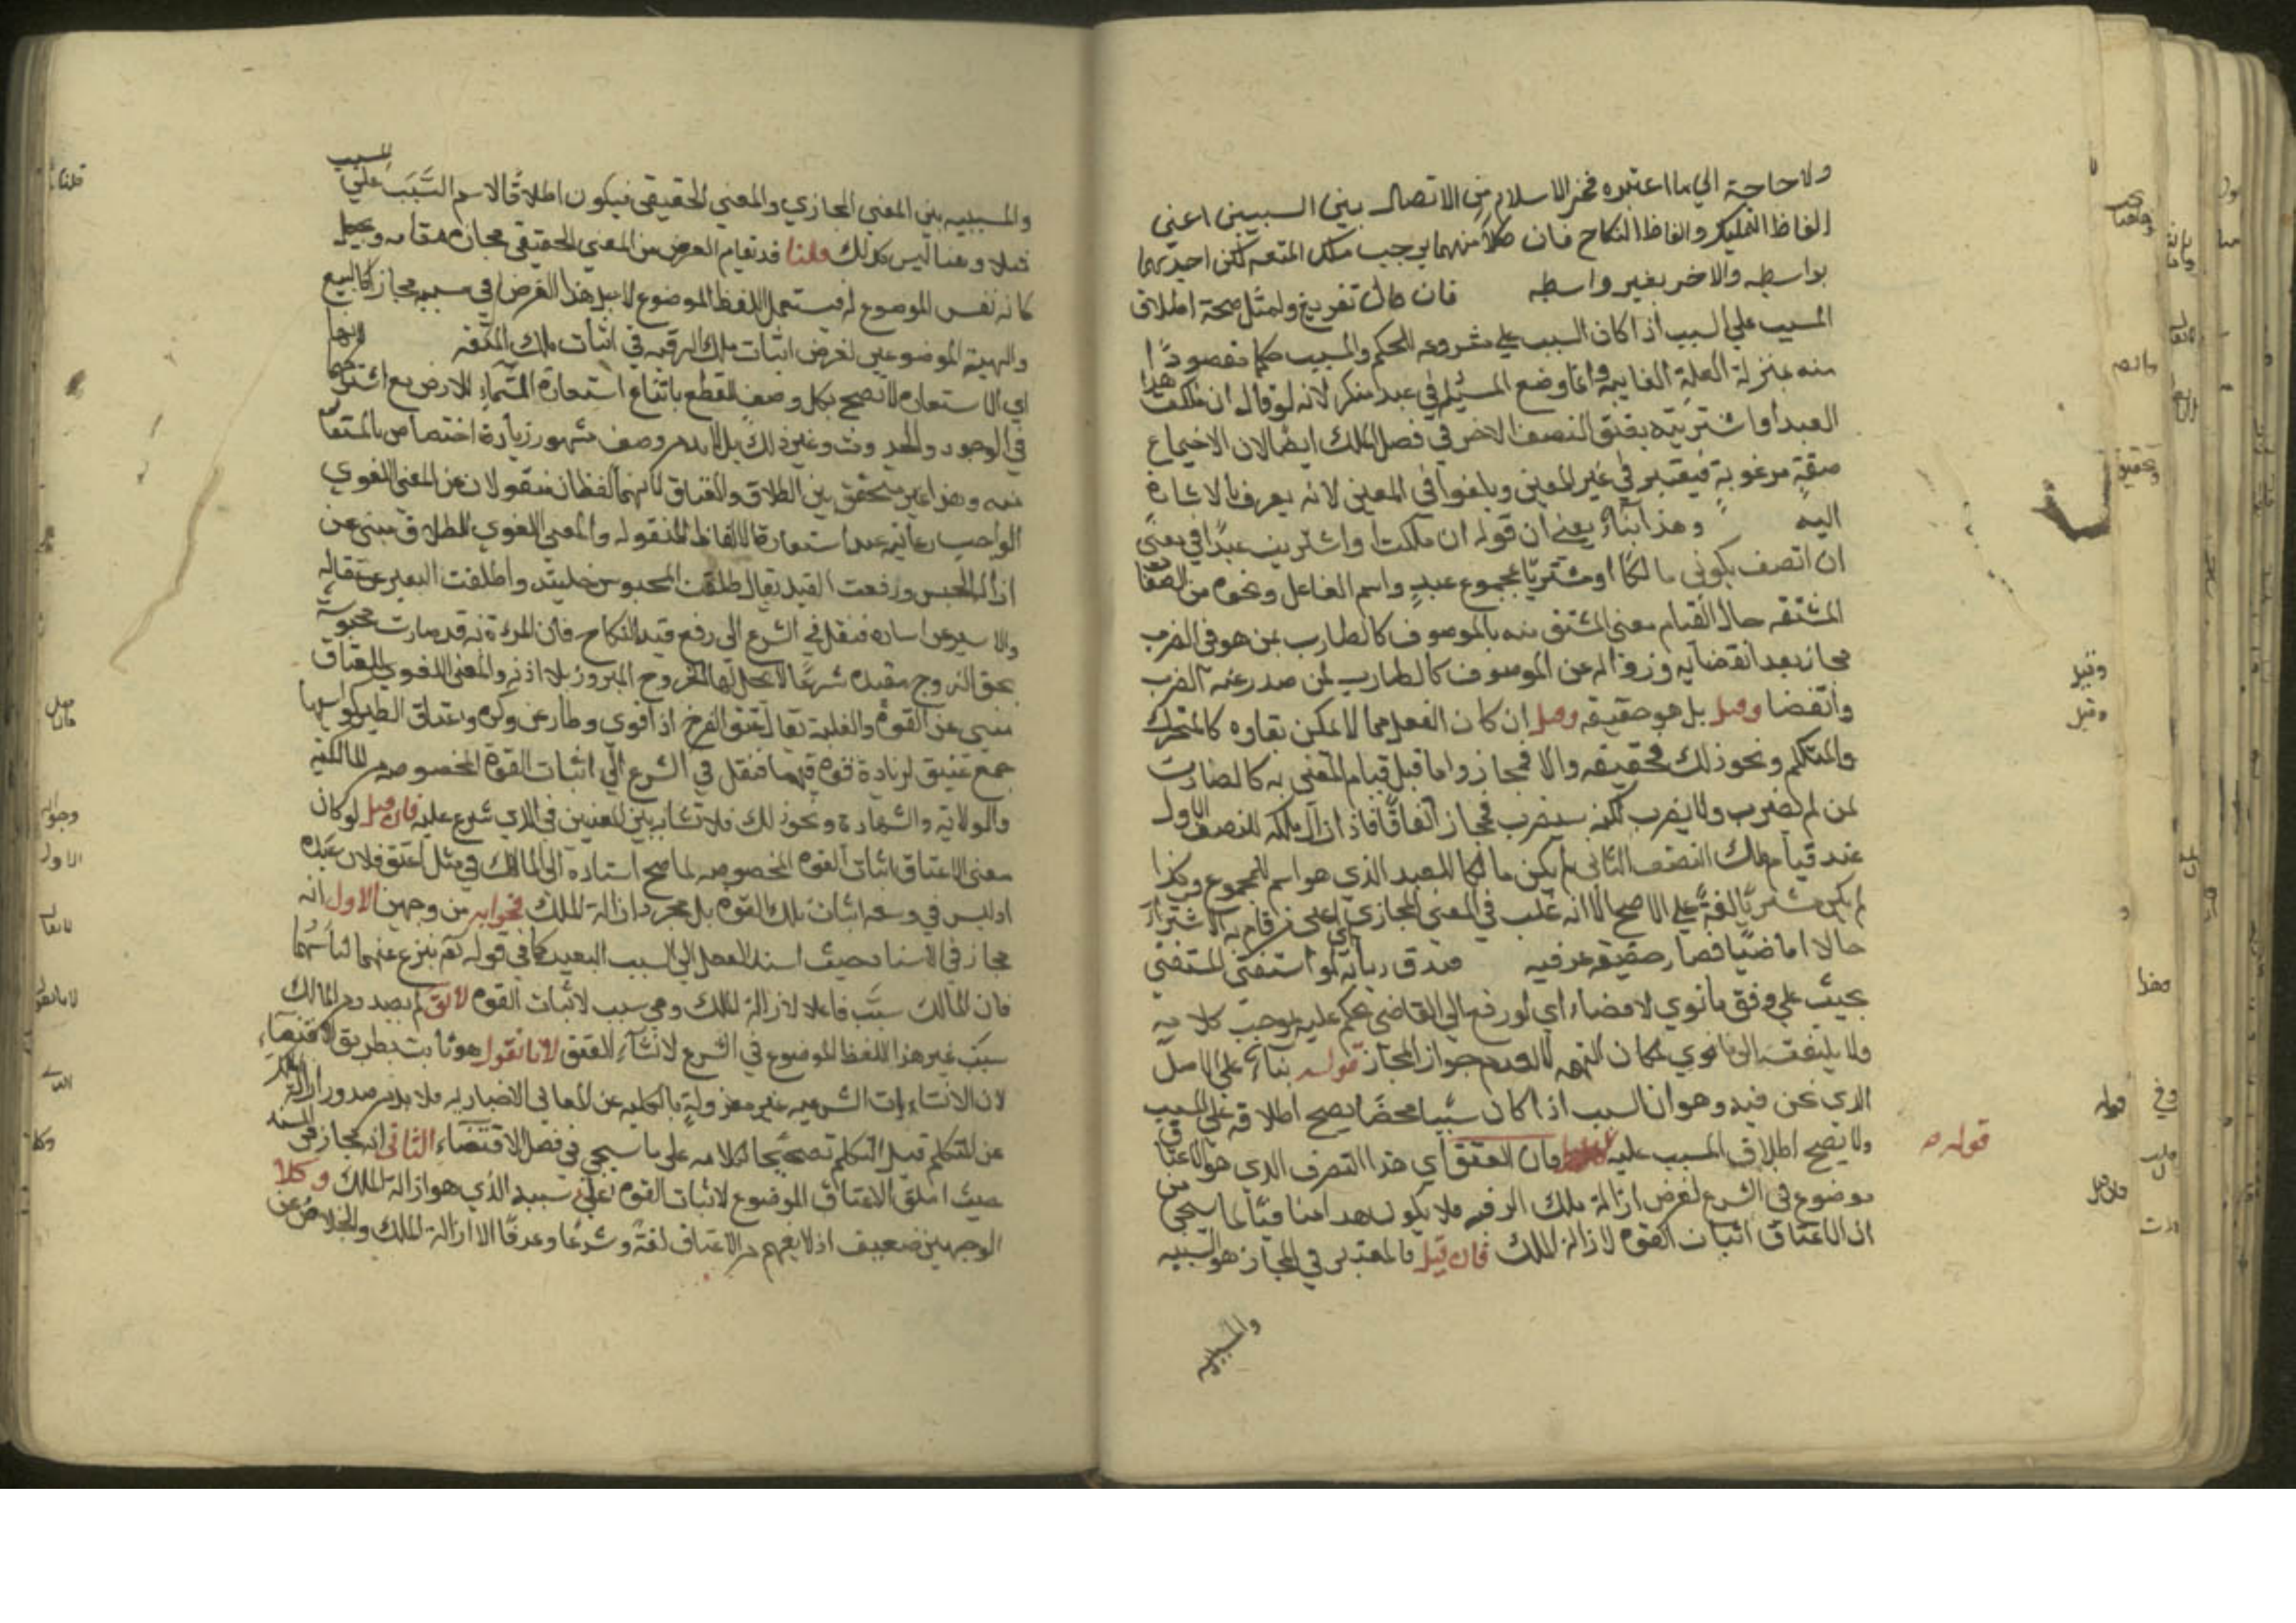 ولا حاجة الي ما اعتبره فخر الاسلام من الاتصال بين السببين اعني
الفاظ التمليك والفاظ النكاح فان كلا منهما يوجب ملك المتعه لكن احديهما
بواسطه والاخر بغير واسطه فان قال تفريغ ولمثل صحة اطلاق
المسبب علي السبب اذا كان السبب علي مشروعه الحكم والمسبب حكما مقصودًا
منه بمنزلة العلة الغايية وانما وضع المسئلة في عبد منكر لانه لو قال ان ملكت هذا
العبد او اشتريته يعتق النصف الاخر في فصل الملك ايضا لان الاجتماع
صفة مرغوبة فيعتبر في غير المعين ويلغوا في المعين لانه يعرف بالاشارة
اليه وهذا بناءً يعني ان قوله ان ملكت او اشتريت عبدًا في معني
ان اتصف بكوني مالكًا او مشتريًا بمجموع عبدٍ واسم الفاعل ونحوه من الصفات
المشتقه حال القيام معني المشتق منه بالموصوف كالضارب لمن هو في الضرب
مجاز بعد انقضايه وزواله عن الموصوف كالضارب لمن صدر عنه الضرب
وانقضا وقيل بل هو حقيقه وقيل ان كان الفعل مما لا يمكن بقاوه كالمتحرك
والمتكلم ونحو ذلك فحقيقه والا فمجاز واما قبل قيام المعني به كالضارب
لمن لم يضرب ولا يضرب لكنه سيضرب فمجاز اتفاقًا فاذا زال ملكه للنصف الاول
عند قيام ملك النصف الثاني لم يكن مالكا للعبد الذي هو اسم للمجموع وكذا
لم يكن مشتريًا لغةً علي الاصح الا انه غلب في المعني المجازي اي علي من قام به الاشتراء
حالا او ماضيًا فصار حقيقه عرفيه صدق ديانه اي لو استفتي المفتي
يجيب علي وفق ما نوي لا قضاء اي لو رفع الي القاضي يحكم عليه بموجب كلامه
ولا يلتفت الي ما نوي لمكان التهمه لا لعدم جواز المجاز قوله بناءً علي الاصل
الذي نحن فيه وهو ان السبب اذا كان سببا محضًا يصح اطلاقه علي المسبب
ولا يصح اطلاق المسبب عليه فان العتق اي هذا التصرف الذي هو الاعتاق
موضوع في الشرع لغرض ازالة ملك الرقبه فلا يكون هذا منافيًا لما سيجي من
ان الاعتاق اثبات القوه لا ازالة الملك فان قيل فالمعتبر في المجاز هو السببيه
والمسببيه
قوله
والمسببيه بين المعني المجازي والمعني الحقيقي فيكون اطلاقًا لاسم السَّبَب علي المسبب
وهنا ليس كذلك قلنا قد يقام الغرض من المعني الحقيقي مقامه ويجعل
كانه نفس الموضوع له فيستعمل اللفظ الموضوع لاجل هذا الغرض في سببه مجازا كالبيع
والهبة الموضوعين لغرض اثبات ملك الرقبه في اثبات ملك المتعه
اي الاستعاره لا تصح بكل وصف للقطع بامتناع استعارة السماء للارض مع اشتراكهما
في الوجود والحدوث وغير ذلك بل لا بد من وصف مشهور زيادة اختصاص بالمستعار
منه وهذا غير متحقق بين الطلاق والعتاق لانهما لفظان منقولان عن المعني اللغوي
الواجب رعايته عند استعارة الالفاظ المنقوله والمعني اللغوي للطلاق مبني عن
ازالة الحبس ورفعت القيد يقال طلقت المحبوس خليته واطلقت البعير عن عقاله
والاسير عن اساره فنقل في الشرع الي رفع قيد النكاح فان المرءة به قد صارت محبوسه
بحق الزوج مقيده شرعًا لا يحل لها الخروج والبروز بلا اذنه والمعني اللغوي للعتاق
مبني عن القوة والغلبه يقال عتق الفرخ اذا قوي وطار عن وكره وعتاق الطير كواسبها
جمع عتيق لزيادة قوه فيها فنقل في الشرع الي اثبات القوة المخصوصه من المالكيه
والولاية والشهادة ونحو ذلك فلا تشابه بين المعنيين في الذي شرع عليه فان قيل لو كان
معني الاعتاق اثبات القوه المخصوصه لما صح اسناده الي المالك في مثل اعتق فلان عبده
اذ ليس في وسعه اثبات تلك القوه بل مجرد ازالة الملك فجوابه من وجهين الاول انه
مجاز في الاسناد حيث اسند الفعل الي السبب البعيد كما في قوله تعم ينزع عنهما لباسهما
فان المالك سبب فاعلا لازالة الملك وهي سبب لاثبات القوه لا يقال لم يصدر من المالك
سبب غير هذا اللفظ الموضوع في الشرع لانشاء العتق لانا نقول هو ثابت بطريق الاقتضاء
لان الانشاءات الشرعيه غير معزولةٍ بالكليه عن المعاني الاخباريه فلا بد من صدور ازالة الملك
عن المتكلم قبيل التكلم تصحيحا لكلامه علي ما سيجي في فصل الاقتضاء الثاني انه مجاز في المسند
حيث اطلق الاعتاق الموضوع لاثبات القوه علي سببه الذي هو ازالة الملك وكلا
الوجهين ضعيف اذ لا يفهم من الاعتاق لغةً وشرعًا وعرفًا الا ازالة الملك والخلاص عن